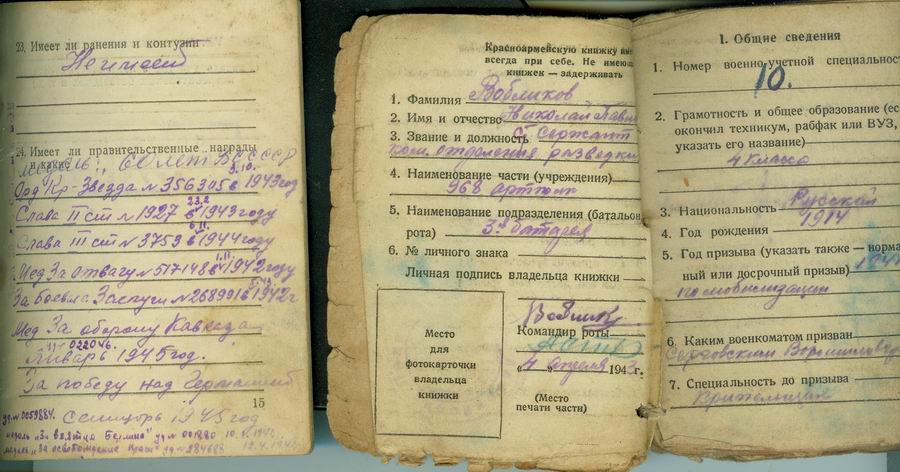 23. Имеет ли ранения и контузии
Не имеет
24. Имеет ли правительственные награды
и какие
медаль: "60 лет ВС СССР
3.10.
Орд Кр-Звезда № 356305 в 1943 год
23.2
Слава II ст № 1927 в 1943 году
6.11.
Слава III ст № 3753 в 1944 году
Мед За отвагу № 517148 в 1942 году
За боевые Заслуги № 268991 в 1942 г
Мед За оборону Кавказа
022046.
Январь 1945 год.
За победу над Германией
15
уд. № 0059884. 1945 год
медаль "За взятие Берлина" уд № 001880
медаль "За освобождение Праги" уд №
Красноармейскую книжку
всегда при себе. Не имею
книжек — задерживать
1. Фамилия Вобликов
2. Имя и отчество Николай
3. Звание и должность Ст Сержант
ком. отделения разведки
4. Наименование части (учреждения)
968 артполк
5. Наименование подразделения (батальон
рота) 3я батарея
6. № личного знака
Личная подпись владельца книжки
Командир роты
"4" апреля 1943г.
Место
для
фотокарточки
владельца
книжки
(Место
печати части)
I. Общие сведения
1. Номер военно-учетной специальнос
10.
2. Грамотность и общее образование (ес
окончил техникум, рабфак или ВУЗ,
указать его название)
4 класса
3. Национальность Русский
4. Год рождения 1914
5. Год призыва (указать также — норма
ный или досрочный призыв) 1941
по мобилизации
6. Каким военкоматом призван
7. Специальность до призыва